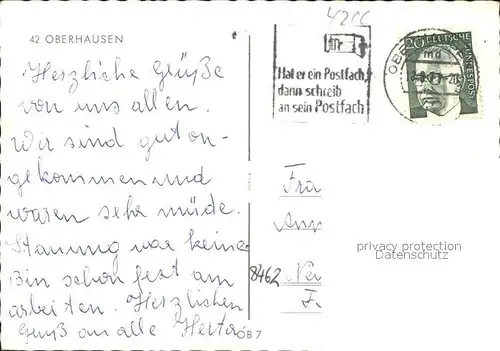 42 OBERHAUSEN
4200
Hat er ein Postfach,
dann schreib
an sein Postfach
20 DEUTSCHE BUNDESPOST
Herzliche Grüße
von uns allen.
Wir sind gut an-
gekommen und
waren sehr müde.
Stauung war keine
Bin schon fest am
arbeiten. Herzlichen
Gruß an alle Herta
ÖB 7
Fra
Ann
8462
privacy protection
Datenschutz